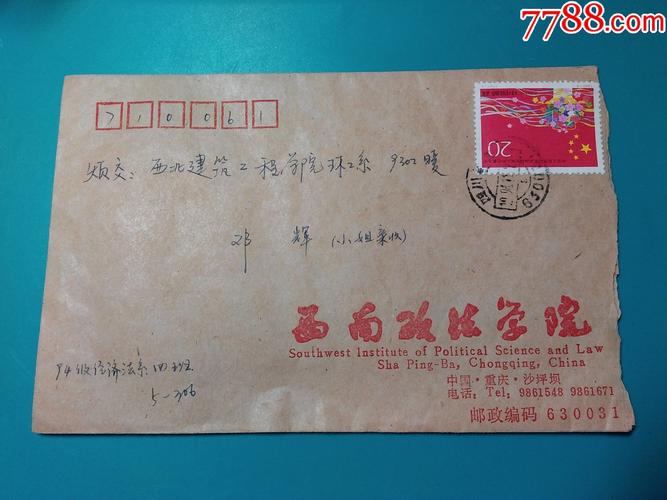 7788.com
710061
20
烦交：西北建筑工程学院环工系 9302暖
邓辉（小姐亲收）
四川
西南政法学院
Southwest Institute of Political Science and Law
Sha Ping-Ba, Chongqing, China
中国·重庆·沙坪坝
电话：Tel, 9861548 9861671
邮政编码 630031
94级经济法系四班
5-306